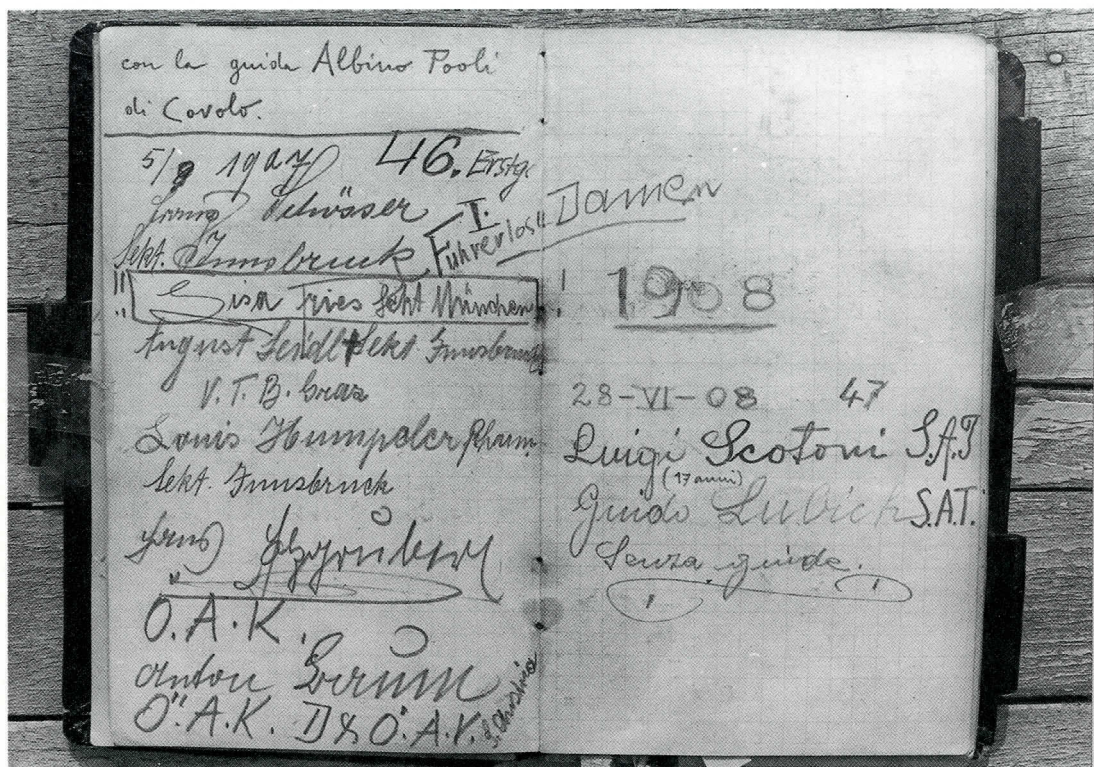 con la guida Albino Pooli
di Covolo.
5/9 1907 46. Erstg.
Sekt. Innsbruck
I. Führerlose Damen
" Lisa Fries Sekt München !
August Seidl Sekt. Innsbruck
V. T. B. Graz
Louis Humpeler
Sekt. Innsbruck
Hans
Ö.A.K.
Anton
Ö.A.K. D & Ö.A.V. S. Christina
1908
28-VI-08 47
Luigi Scotoni S.A.T
(17 anni)
Guido Lubich S.A.T.
Senza guide.